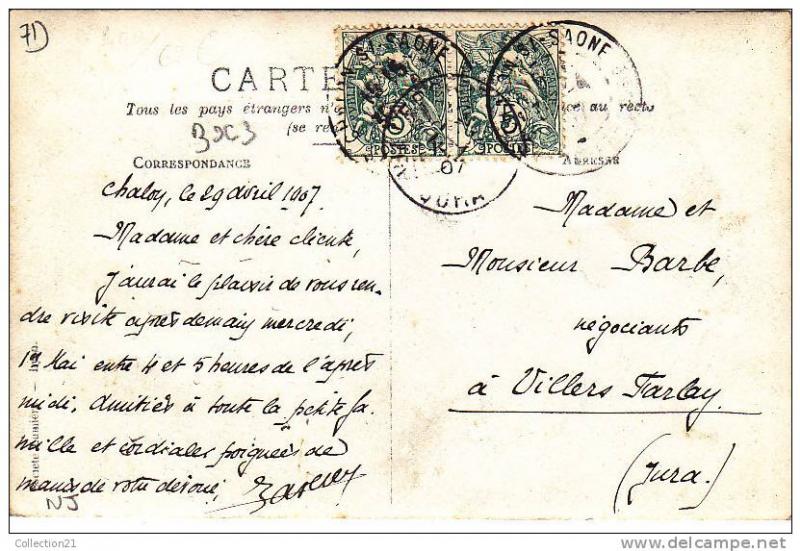 71
CARTE
Tous les pays étrangers n'a
ce au recto
(se re
3x3
CORRESPONDANCE
ADRESSE
CHALON-S-SAONE
SAONE
POSTES
POSTES
5
5
07
JURA
Chalon, le 29 avril 1907
Madame et chère cliente,
J'aurai le plaisir de vous ren-
dre visite après demain mercredi,
1er Mai entre 4 et 5 heures de l'après
midi. Amitiés à toute la petite fa-
mille et cordiales poignées de
mains de votre dévoué,
Madame et
Monsieur Barbe,
négociants
à Villers Farlay
(Jura.)
NJ
Collection21
www.delcampe.net